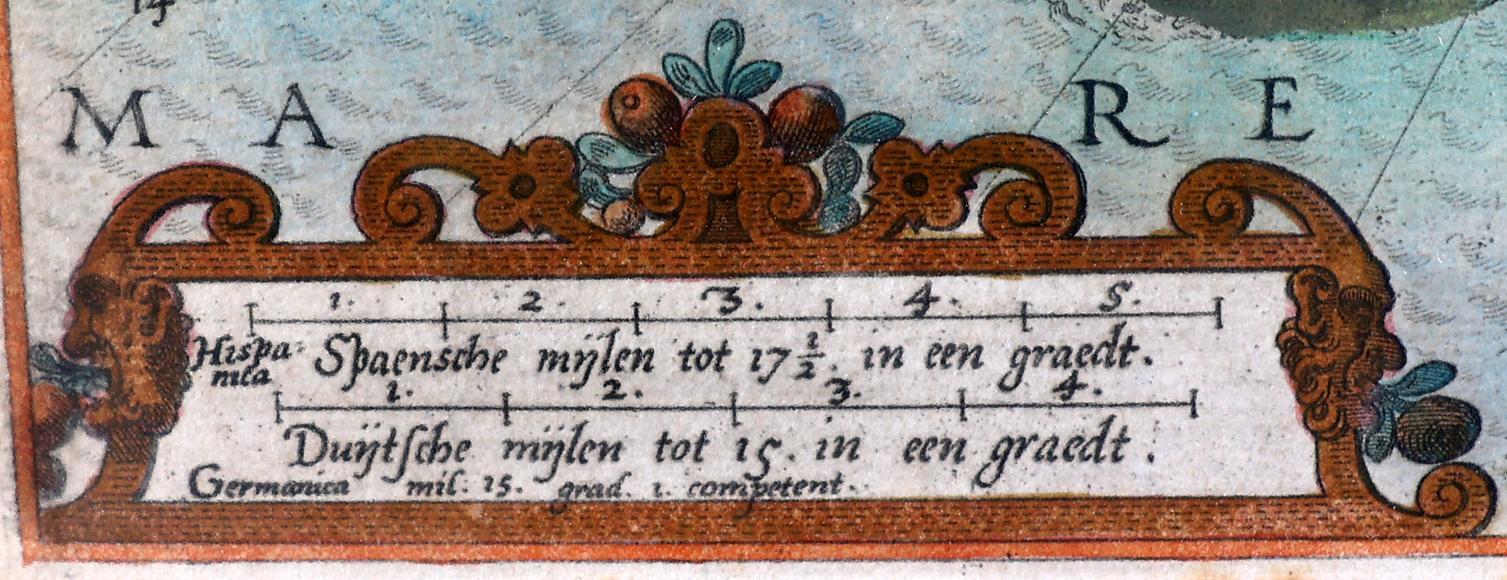 14
M A R E
1. 2. 3. 4. 5.
Hispa: Spaensche mijlen tot 17 1/2. in een graedt.
nica
1. 2. 3. 4.
Duijtſche mijlen tot 15. in een graedt.
Germanica mil: 15. grad. 1. competent.